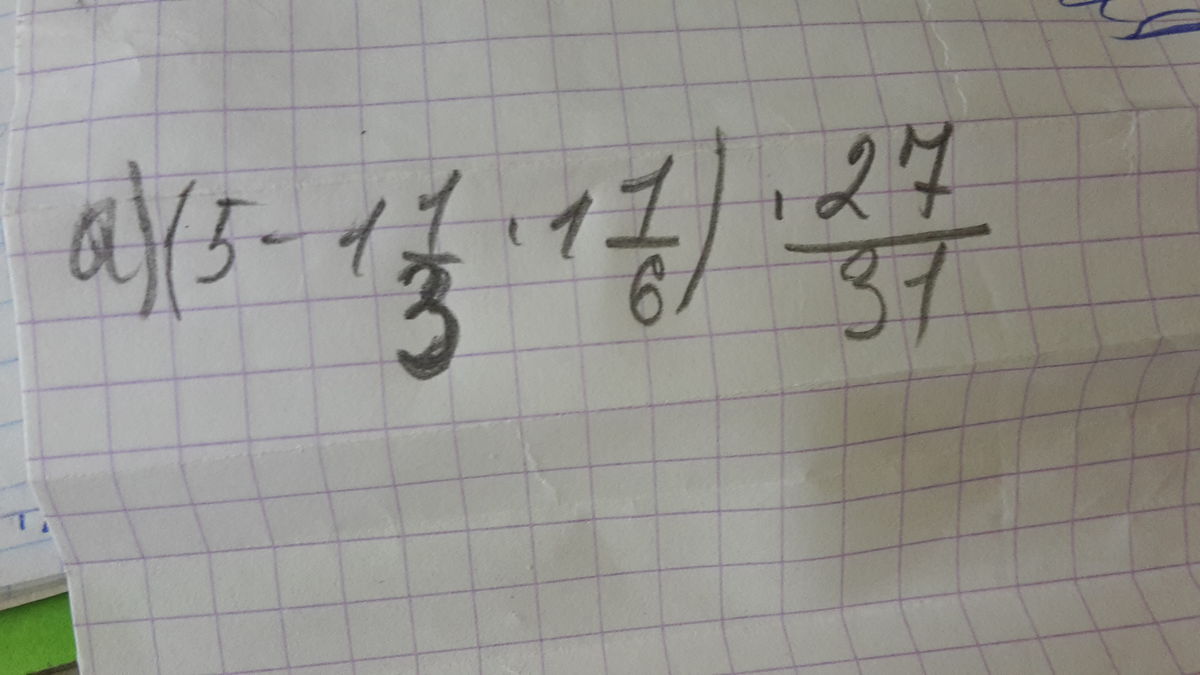 а) (5 - 1 1/3 · 1 1/6) · 27/31